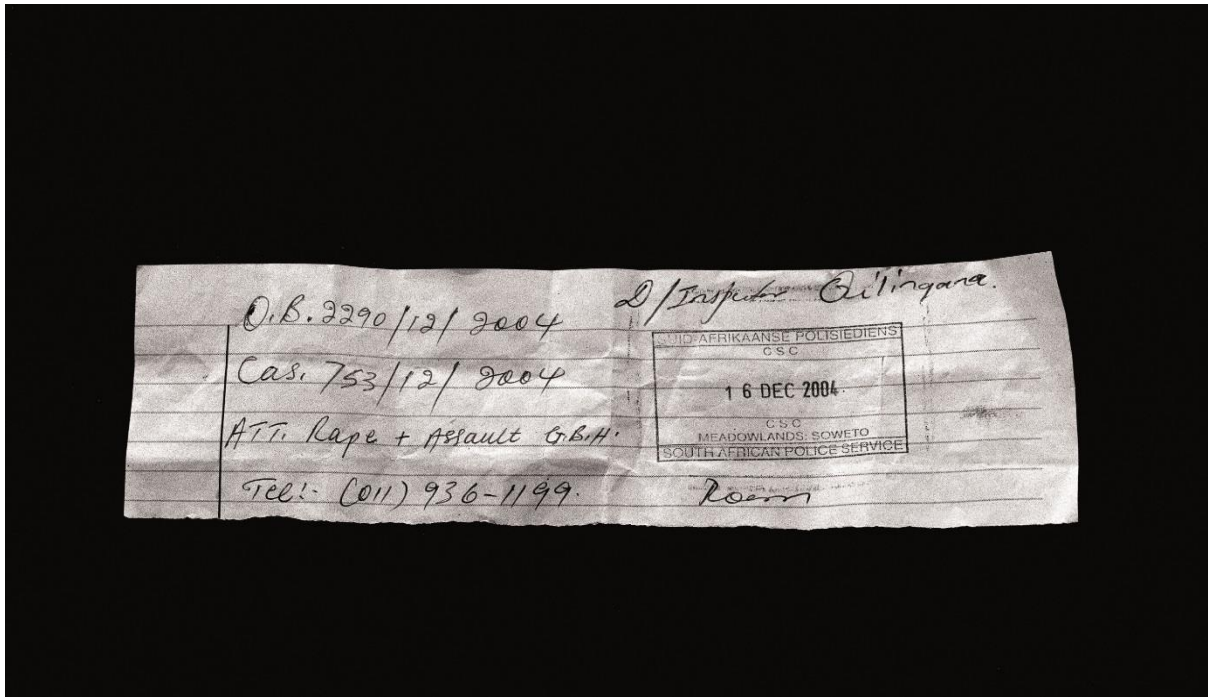 O.B. 2290/12/2004
Cas. 753/12/2004
ATT. Rape + Assault G.B.H.
Tel:- (011) 936-1199.
D/Inspector
SUID-AFRIKAANSE POLISIEDIENS
CSC
16 DEC 2004
CSC
MEADOWLANDS: SOWETO
SOUTH AFRICAN POLICE SERVICE